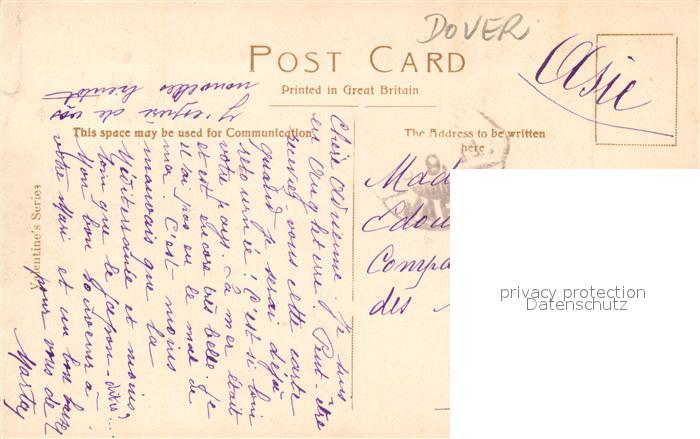 DOVER
POST CARD
Printed in Great Britain
Asie
This space may be used for Communication
The Address to be written
here
Valentine's Series
Chère Adrienne. Je suis
en Angleterre! Peut-être
vous cette carte
quand je serai déjà
retourné! C'est si loin
votre pays. La mer était
et est encore très belle. Je
n'ai pas eu le mal de
mer. C'est moins
mauvais que la
Méditerranée et moins
loin que le Japon
Mon bon Souvenir à
votre Mari et un bon baiser
pour vous de
Marthy
J'espère de vos
nouvelles bientôt
Mad
Edou
Compa
des
privacy protection
Datenschutz